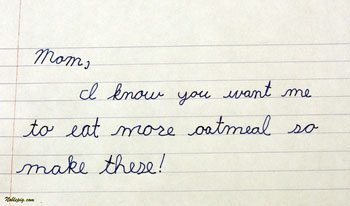 Mom,
I know you want me
to eat more oatmeal so
make these!
Noblepig.com